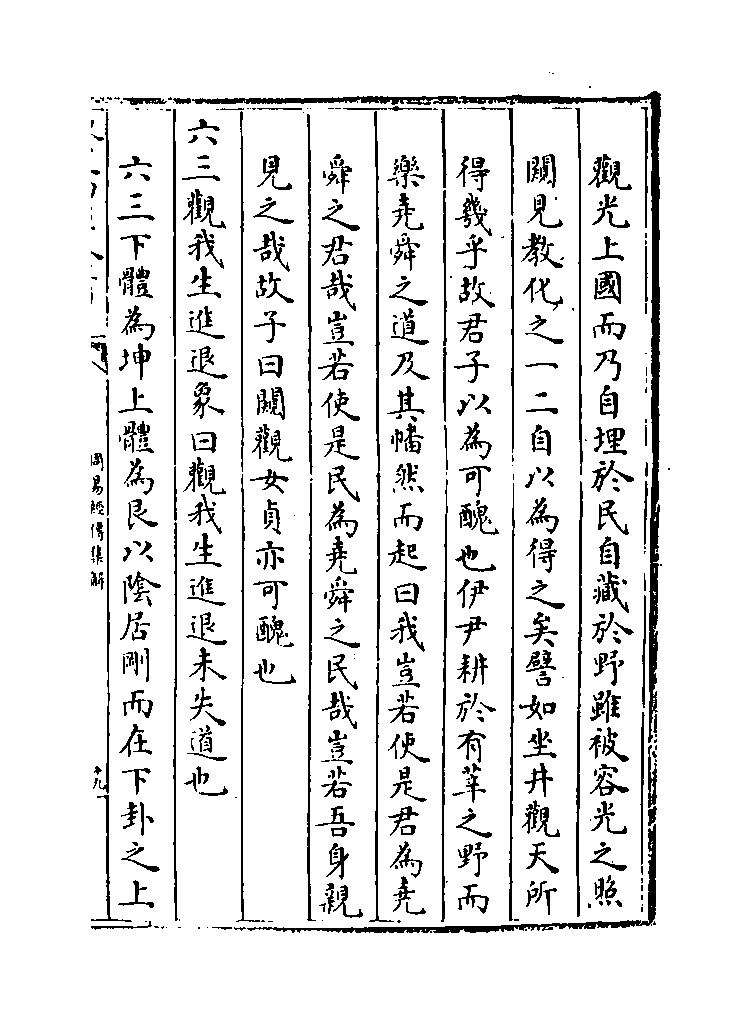 觀光上國而乃自埋於民自藏於野雖被容光之照
闚見教化之一二自以為得之矣譬如坐井觀天所
得幾乎故君子以為可醜也伊尹耕於有莘之野而
樂堯舜之道及其幡然而起曰我豈若使是君為堯
舜之君哉豈若使是民為堯舜之民哉豈若吾身親
見之哉故子曰闚觀女貞亦可醜也
六三觀我生進退象曰觀我生進退未失道也
六三下體為坤上體為艮以陰居剛而在下卦之上
周易經傳集解
十九